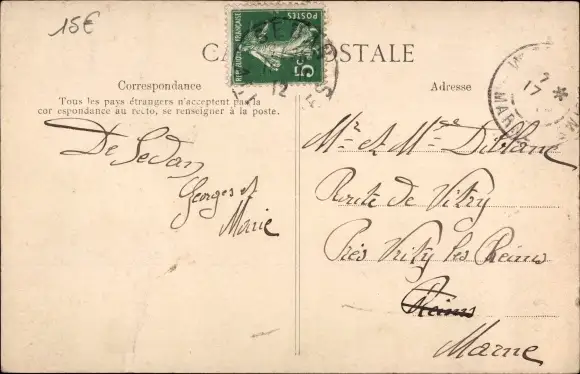 15€
CARTE POSTALE
Correspondance
Tous les pays étrangers n'acceptent pas la
cor espondance au recto, se renseigner à la poste.
De Sedan
Georges et
Marie
Adresse
Mr et Mme
Route de Vitry
Près Vrity les Reims
Reims
Marne
REPUBLIQUE FRANÇAISE
POSTES
5c
12
17